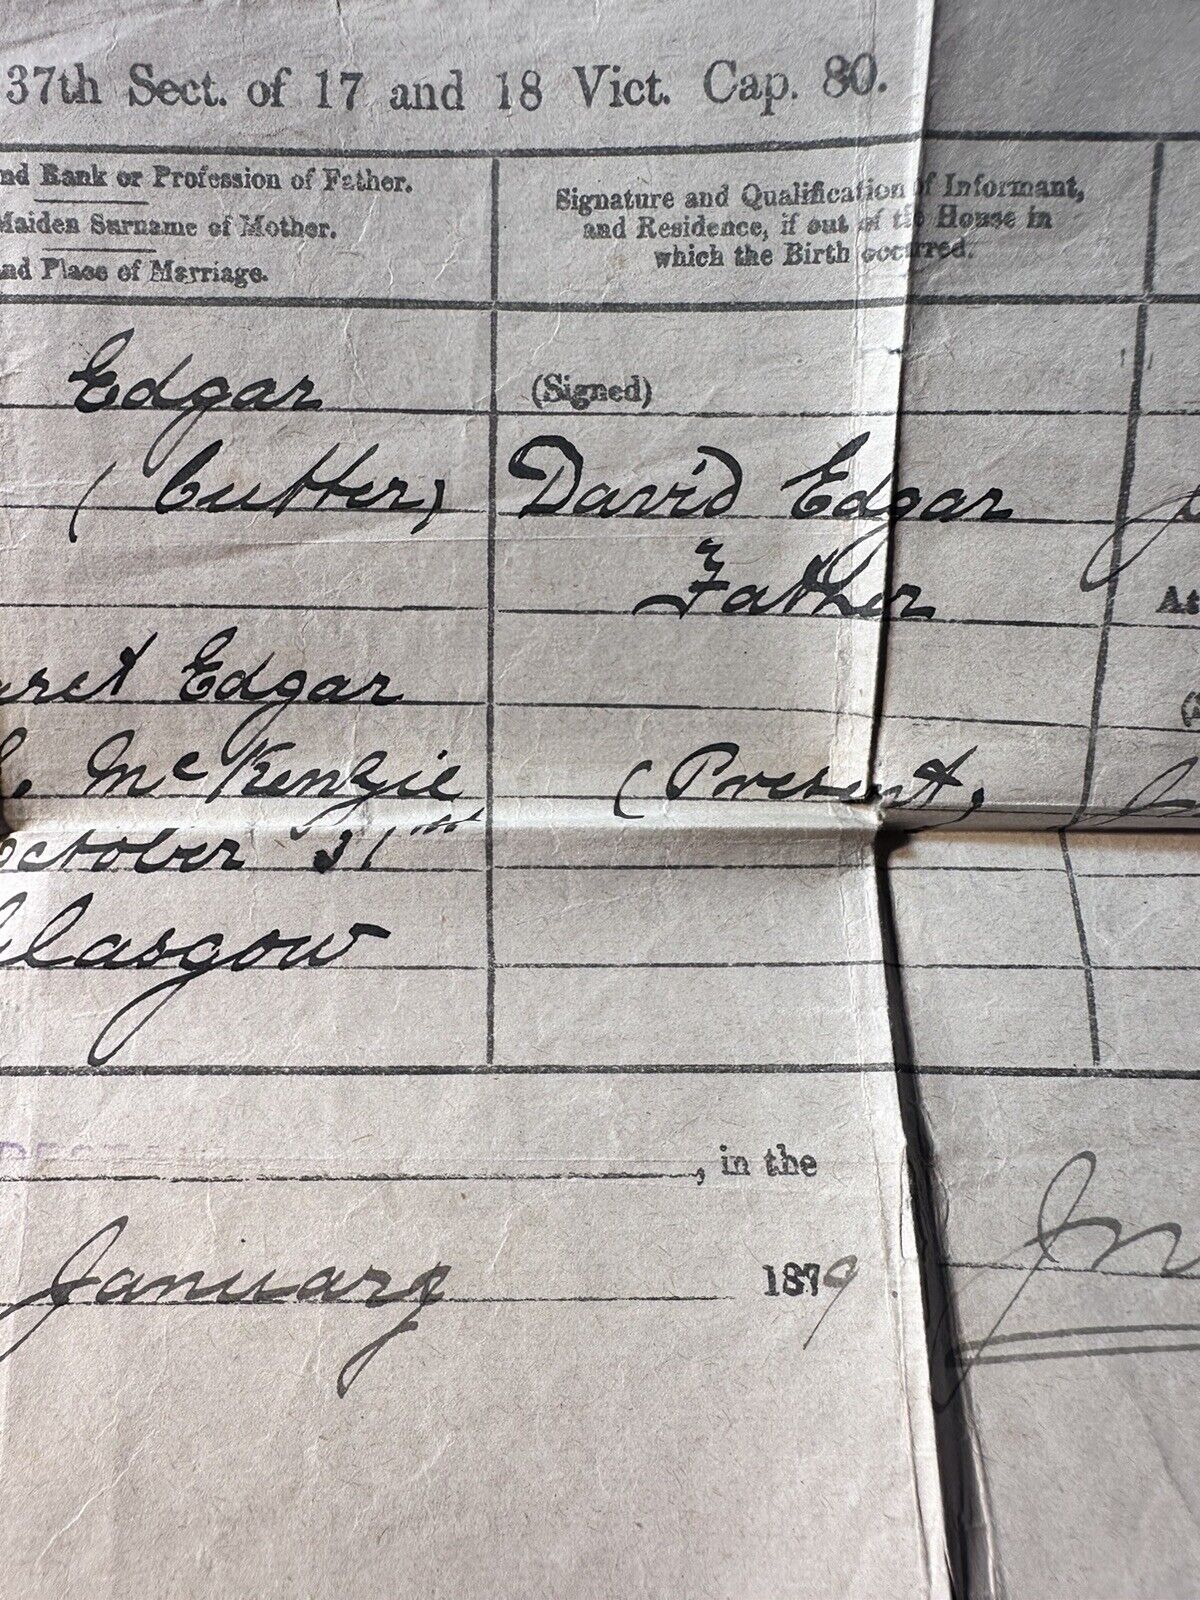 37th Sect. of 17 and 18 Vict. Cap. 80.
nd Rank or Profession of Father.
Maiden Surname of Mother.
nd Place of Marriage.
Signature and Qualification of Informant,
and Residence, if out of the House in
which the Birth occurred.
Edgar
(Signed)
(Cutter)
David Edgar
Father
At
aret Edgar
McKenzie
(Present)
October 31st
Glasgow
, in the
January 1879